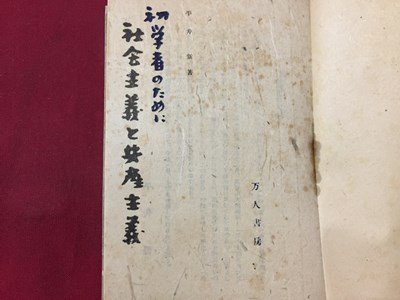 初学者のために
社会主義と共産主義
万人書房